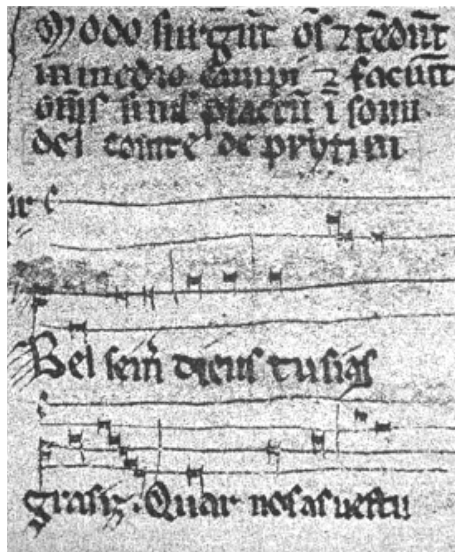 Modo surgūt ōs ⁊ tēdūt
in medio campi ⁊ faciūt
oms̄ simul plactū ī sonu
del comte de peytiui.
Bel sein̄ dieus tu sias
grasiz. Quar nos as uestu